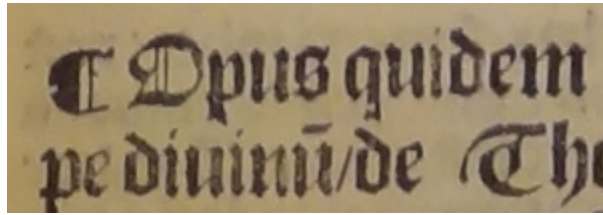 ¶ Opus quidem
pe diuinū/de The